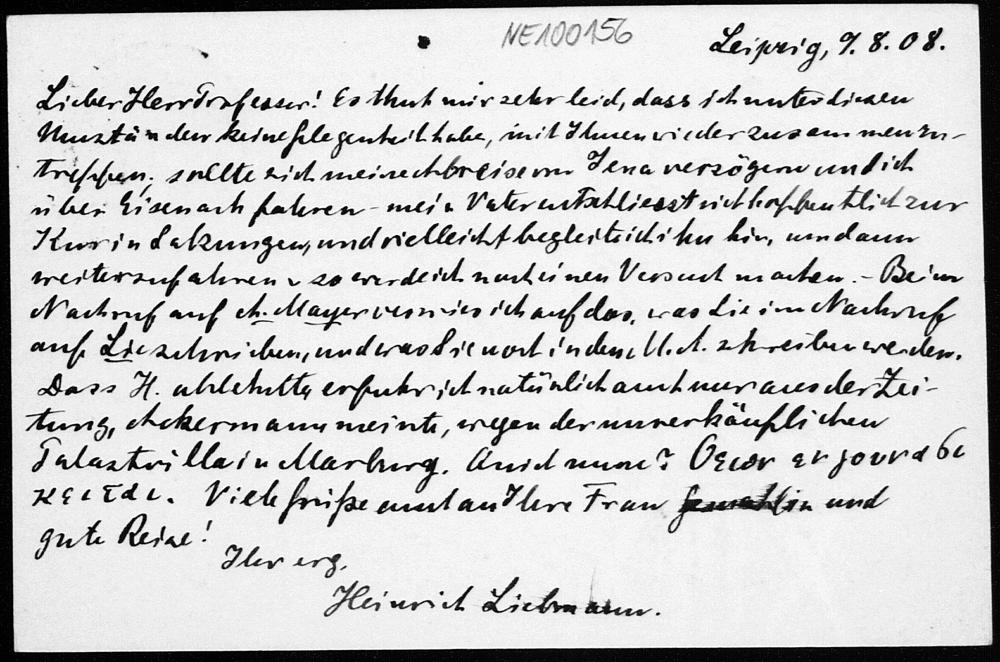 NE100156
Leipzig, 9.8.08.
Lieber Herr Professor! Es thut mir sehr leid, dass ich unter diesen
Umständen keine Gelegenheit habe, mit Ihnen wieder zusammenzu-
treffen; sollte sich meine Abreise von Jena verzögern und ich
über Eisenach fahren – mein Vater entschliesst sich hoffentlich zur
Kur in Salzungen, und vielleicht begleite ich ihn hin, um dann
weiterzufahren – so werde ich noch einen Versuch machen. – Beim
Nachruf auf A. Mayer verwies ich auf das, was Sie im Nachruf
auf Lie schrieben, und was Sie noch in den M.A. schreiben werden.
Dass H. ablehnte, erfuhr ich natürlich auch nur aus der Zei-
tung, Ackermann meinte, wegen der unverkäuflichen
Palastvilla in Marburg. Quid nunc? Θεων εν γουνασι
κειται. Viele Grüße auch an Ihre Frau und
gute Reise!
Ihr erg.
Heinrich Liebmann.